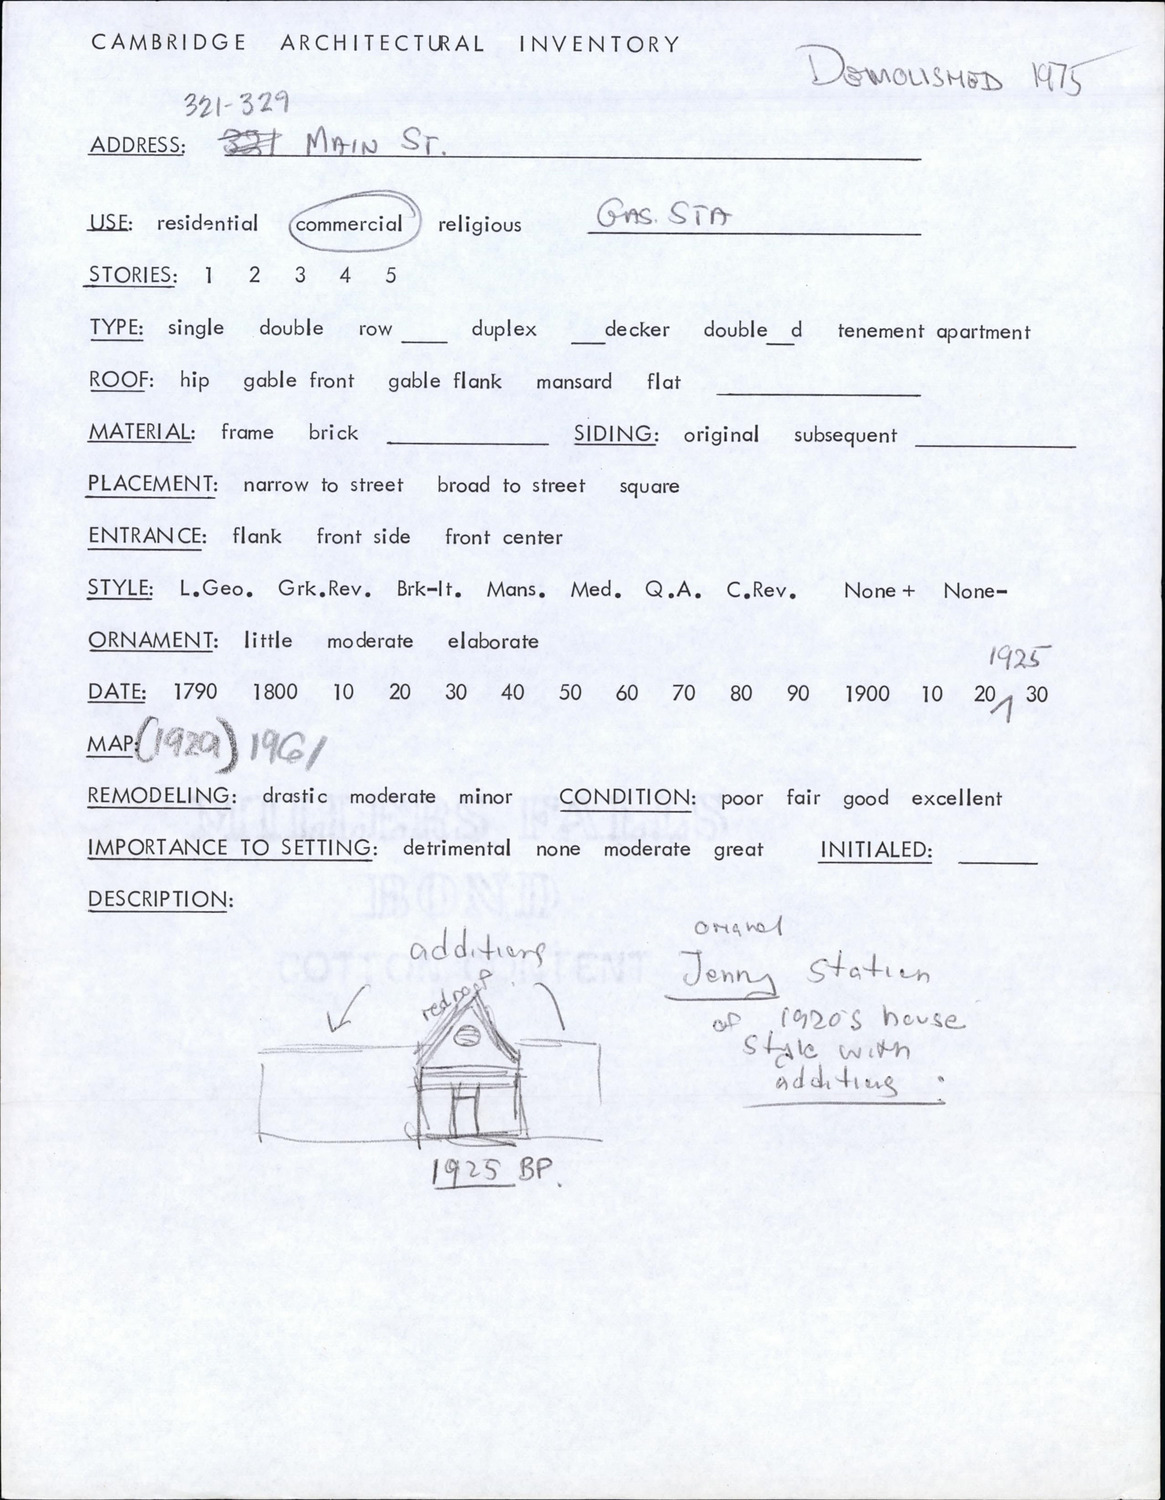 CAMBRIDGE ARCHITECTURAL INVENTORY
DEMOLISHED 1975
321-329
ADDRESS: 321 MAIN ST.
USE: residential commercial religious GAS. STA
STORIES: 1 2 3 4 5
TYPE: single double row ___ duplex ___decker double__d tenement apartment
ROOF: hip gable front gable flank mansard flat
MATERIAL: frame brick ___ SIDING: original subsequent
PLACEMENT: narrow to street broad to street square
ENTRANCE: flank front side front center
STYLE: L.Geo. Grk.Rev. Brk-It. Mans. Med. Q.A. C.Rev. None + None-
ORNAMENT: little moderate elaborate
1925
DATE: 1790 1800 10 20 30 40 50 60 70 80 90 1900 10 20 30
MAP: (1929) 1961
REMODELING: drastic moderate minor CONDITION: poor fair good excellent
IMPORTANCE TO SETTING: detrimental none moderate great INITIALED:
DESCRIPTION:
MILLERS FALLS
COTTON CONTENT
additions
red roof
1925 BP.
original
Jenny Station
of 1920's house
style with
additions.